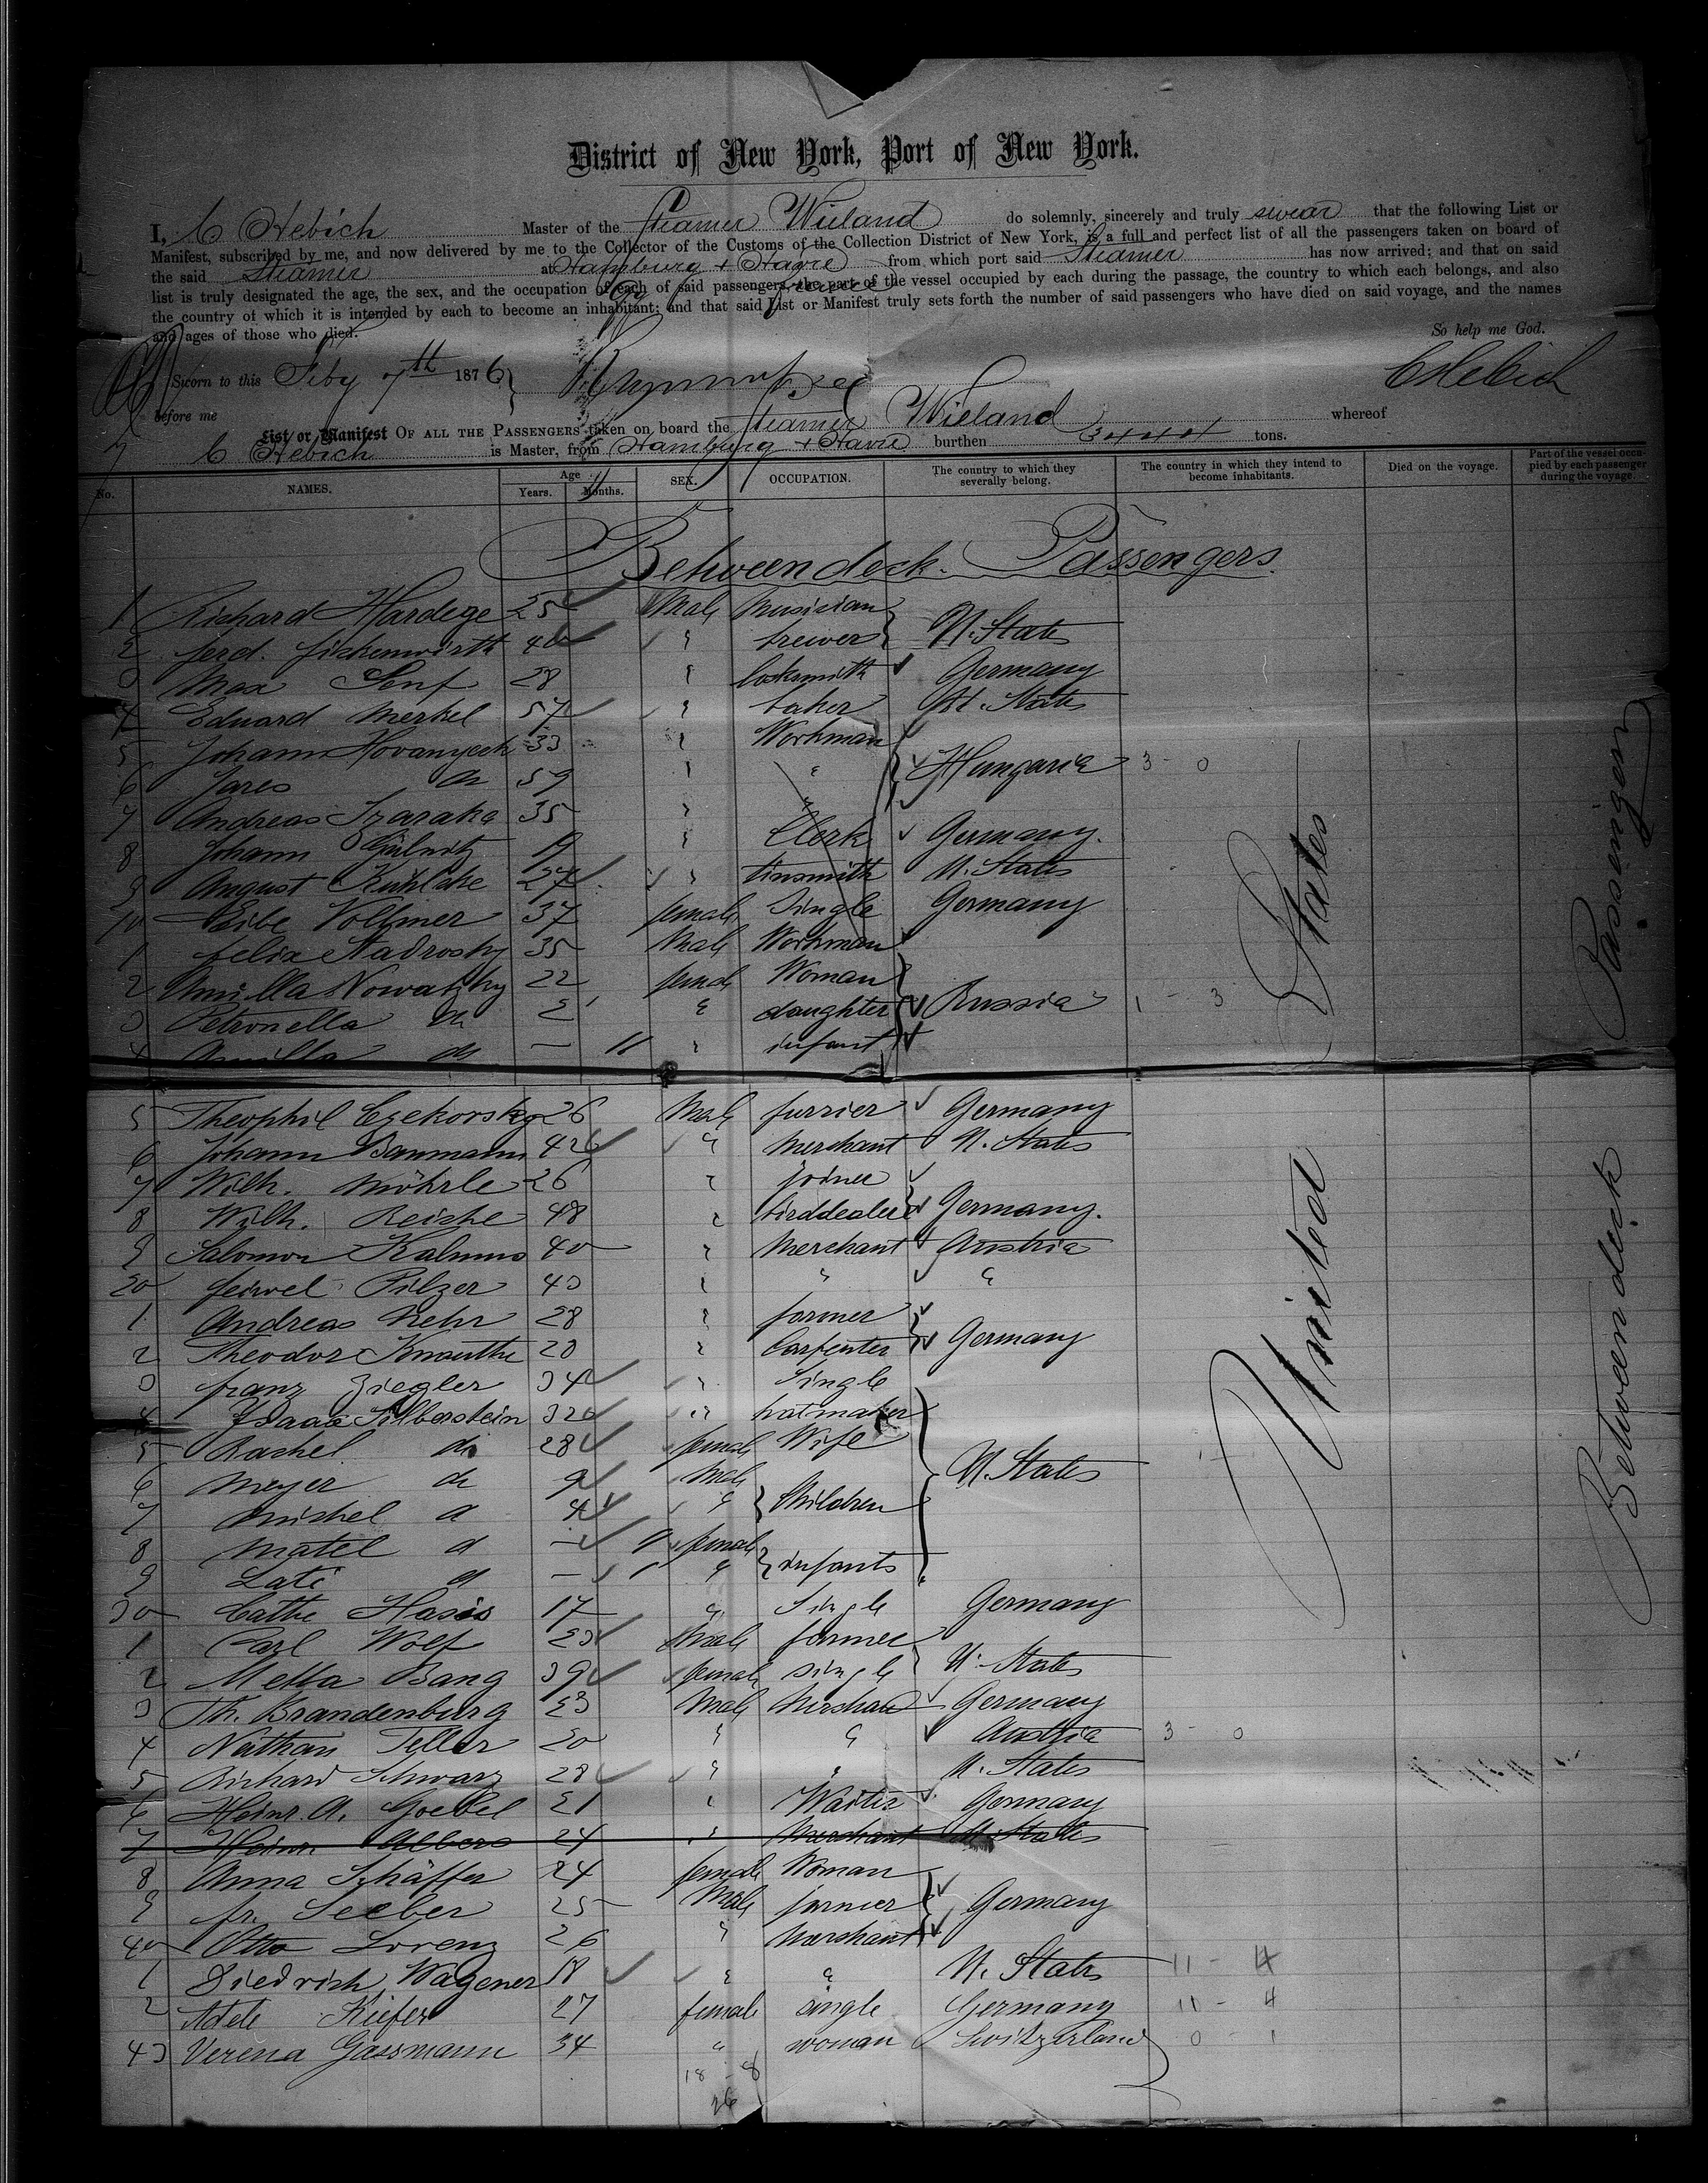 District of New York, Port of New York.
I, C Hebich Master of the Steamer Wieland do solemnly, sincerely and truly swear that the following List or
Manifest, subscribed by me, and now delivered by me to the Collector of the Customs of the Collection District of New York, is a full and perfect list of all the passengers taken on board of
the said Steamer at Hamburg + Havre from which port said Steamer has now arrived; and that on said
list is truly designated the age, the sex, and the occupation of each of said passengers, the part of the vessel occupied by each during the passage, the country to which each belongs, and also
the country of which it is intended by each to become an inhabitant; and that said List or Manifest truly sets forth the number of said passengers who have died on said voyage, and the names
and ages of those who died.
So help me God.
Sworn to this Feby 7th 1876
C Hebich
before me
List or Manifest OF ALL THE PASSENGERS taken on board the Steamer Wieland whereof
C Hebich is Master, from Hamburg + Havre burthen tons.
No. NAMES. Age Years. Months. SEX. OCCUPATION. The country to which they severally belong. The country in which they intend to become inhabitants. Died on the voyage. Part of the vessel occupied by each passenger during the voyage.
Betweendeck Passengers.
1 Richard Hardege 25 Male Musician
2 ferd. fickenwirth 40 " brewer U. States
3 Max Senf 28 " locksmith Germany
4 Eduard Merkel 57 " baker Ut. States
5 Johann Hovanyech 33 " Workman
6 Jares do 59 " " Hungaria 3 - 0
7 Andreas Szaraka 35 " "
8 Johann 19 " Clerk Germany.
9 August Kuhlcke 27 " tinsmith U. States
10 Eibe Vollmer 37 female Single Germany
1 felix Stadrosky 35 Male Workman
2 Nowatzky 22 female Woman
3 Petronella do 2 " daughter Russia 1 - 3
4 do — 11 " infant
5 Theophil Czekorsky 26 Male furrier Germany
6 Johann Banmann 42 " Merchant U. States
7 Wilh. Möhrle 26 " joiner
8 Wilh. Reiche 48 " birddealer Germany.
9 Salomon Kalmus 40 " Merchant Austria
20 feiwel Pilzer 43 " " "
1 Andreas Nehr 28 " farmer
2 Theodor Knauthe 28 " Carpenter Germany
3 franz Ziegler 34 " Single
4 Isaac Silberstein 32 " hatmaker
5 Rachel do 28 female Wife
6 Meyer do 9 Male U. States
7 Michel do 4 " Children
8 Matel do — female
9 Lati do — " infants
30 Cathe Hasis 17 " Single Germany
1 Carl Wolf 23 Male farmer
2 Metta Bang 39 female single U. States
3 Th. Brandenburg 23 Male Merchant Germany
4 Nathan Teller 20 " " Austria 3 - 0
5 Richard Schwarz 28 " " U. States
6 Heinr. A. Goebel 21 " Waiter Germany
7 Heinr. Albers 24 " Merchant U. States
8 Anna Schäffer 24 female Woman
9 fr. Seeber 25 Male farmer Germany
40 Otto Lorenz 26 " Merchant
1 Diedrich Wagener 18 " " U. States 11 - 4
2 Adele Kiefer 27 female single Germany 11 - 4
43 Verena Gassmann 34 " woman Switzerland 0 - 1
18 - 8
26
United States
Betweendeck Passengers